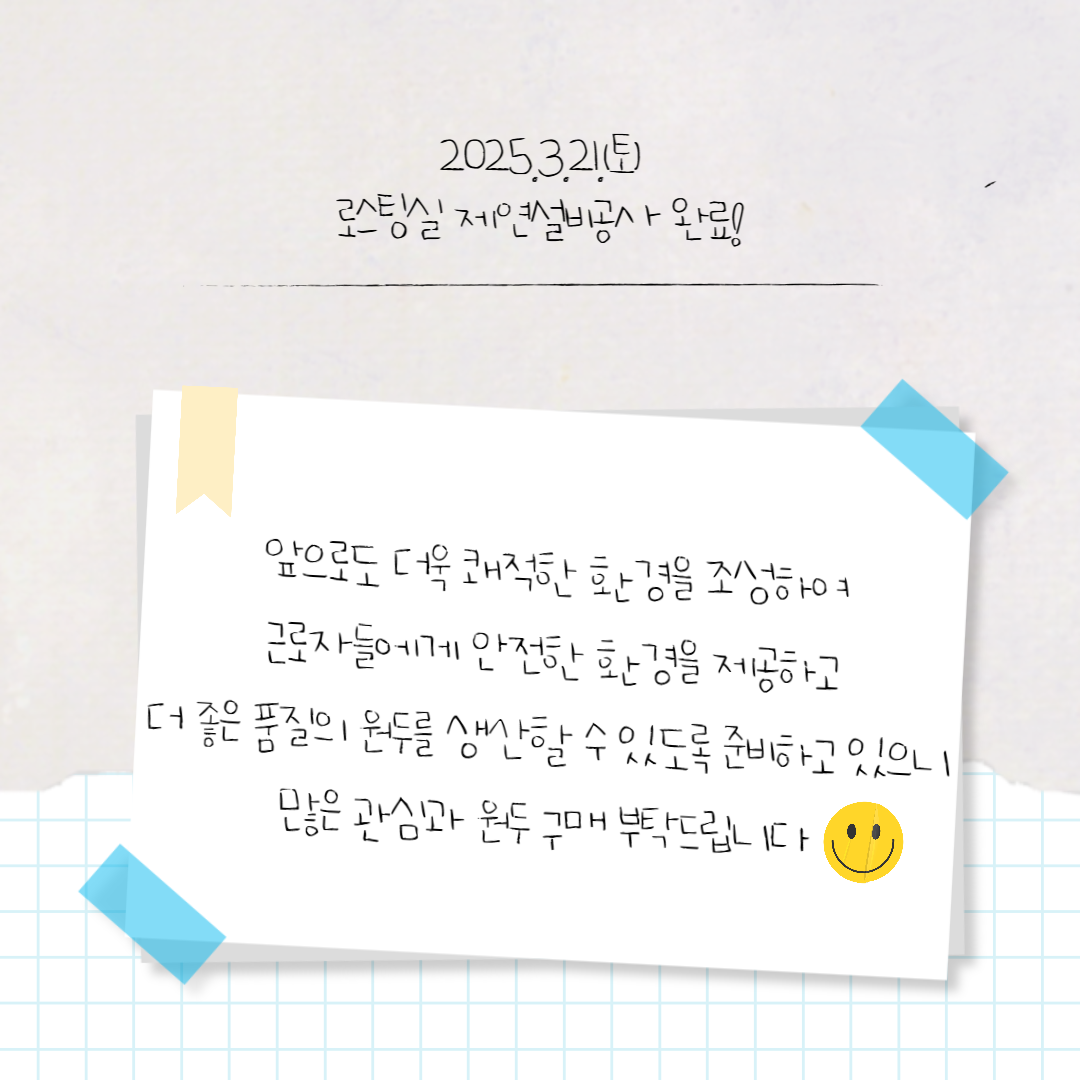 2025.3.21.(토)
로스팅실 제연설비공사 완료!
앞으로도 더욱 쾌적한 환경을 조성하여
근로자들에게 안전한 환경을 제공하고
더 좋은 품질의 원두를 생산할 수 있도록 준비하고 있으니
많은 관심과 원두 구매 부탁드립니다